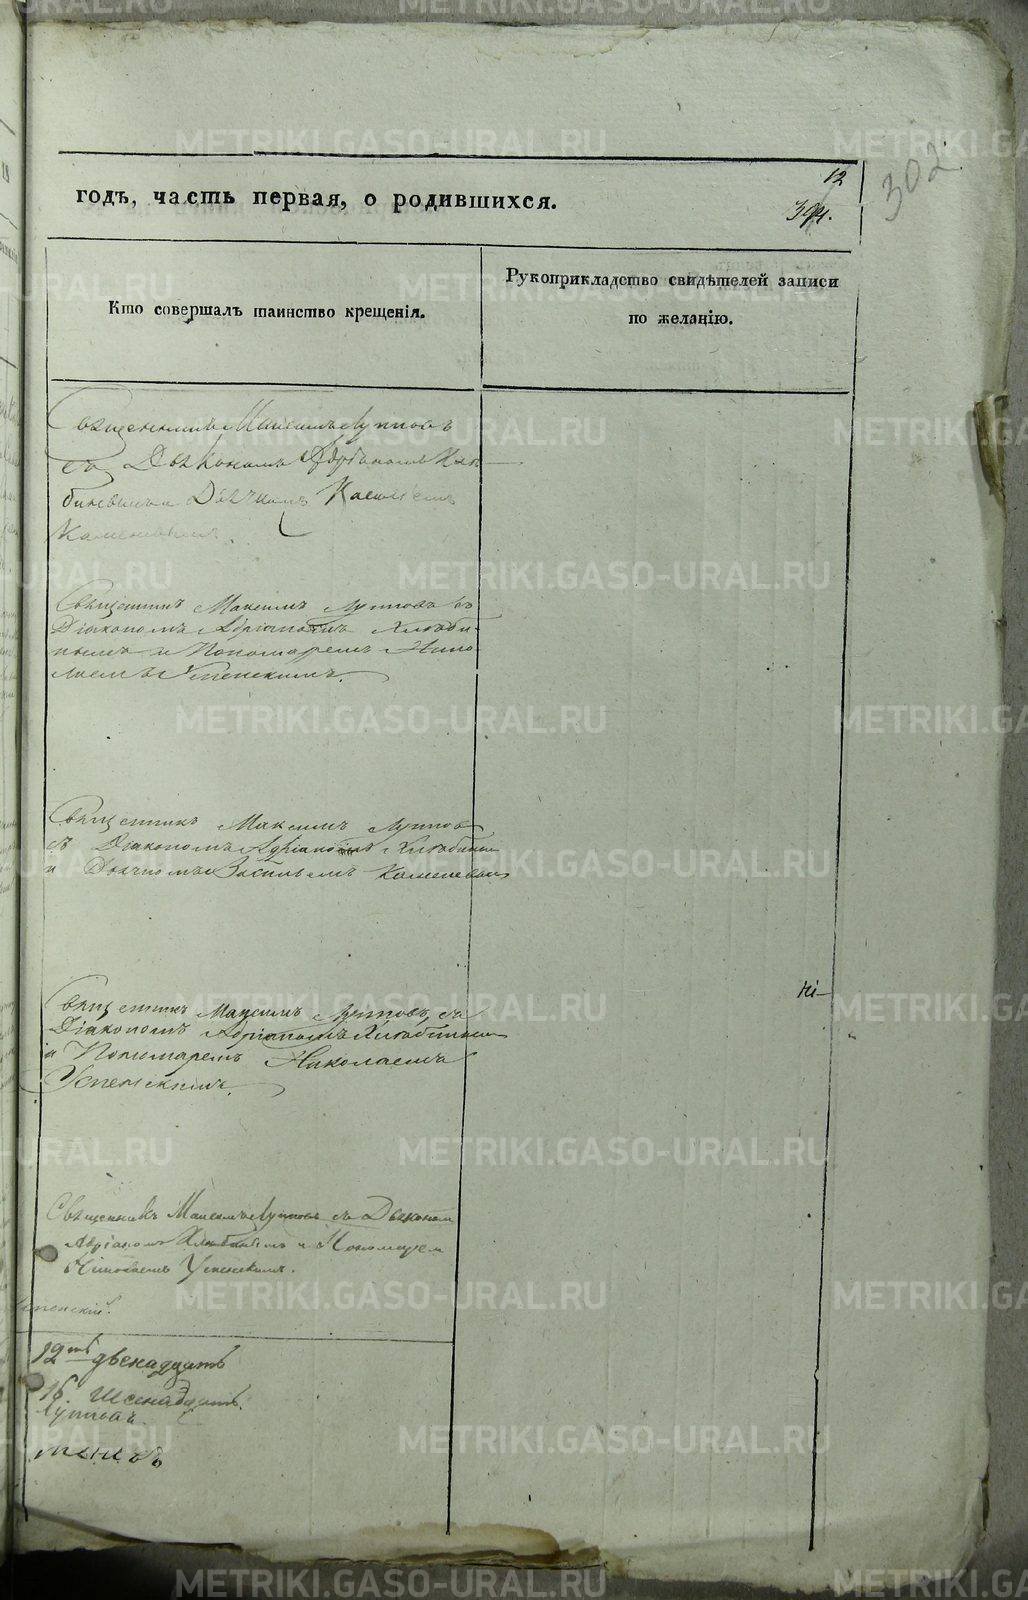 302
12
394.
годъ, часть первая, о родившихся.
Кто совершалъ таинство крещенія.
Рукоприкладство свидѣтелей записи
по желанію.
Священникъ Максимъ Луповъ
съ Дьякономъ Адріаномъ Хлѣ-
бинымъ и Дьячкомъ Василіемъ
Каменевымъ.
Священникъ Максимъ Луповъ съ
Діакономъ Адріаномъ Хлѣби-
нымъ и Пономаремъ Нико-
лаемъ Успенскимъ.
Священникъ Максимъ Луповъ
съ Діакономъ Адріаномъ Хлѣбинымъ
и Дьячкомъ Васильемъ Каменевымъ
Священникъ Максимъ Луповъ съ
Діакономъ Адріаномъ Хлѣбинымъ
и Пономаремъ Николаемъ
Успенскимъ.
Священникъ Максимъ Луповъ съ Дьякономъ
Адріаномъ Хлѣбинымъ и Пономаремъ
Николаемъ Успенскимъ.
Успенскій.
12ть двенадцать
16 шеснадцать.
METRIKI.GASO-URAL.RU